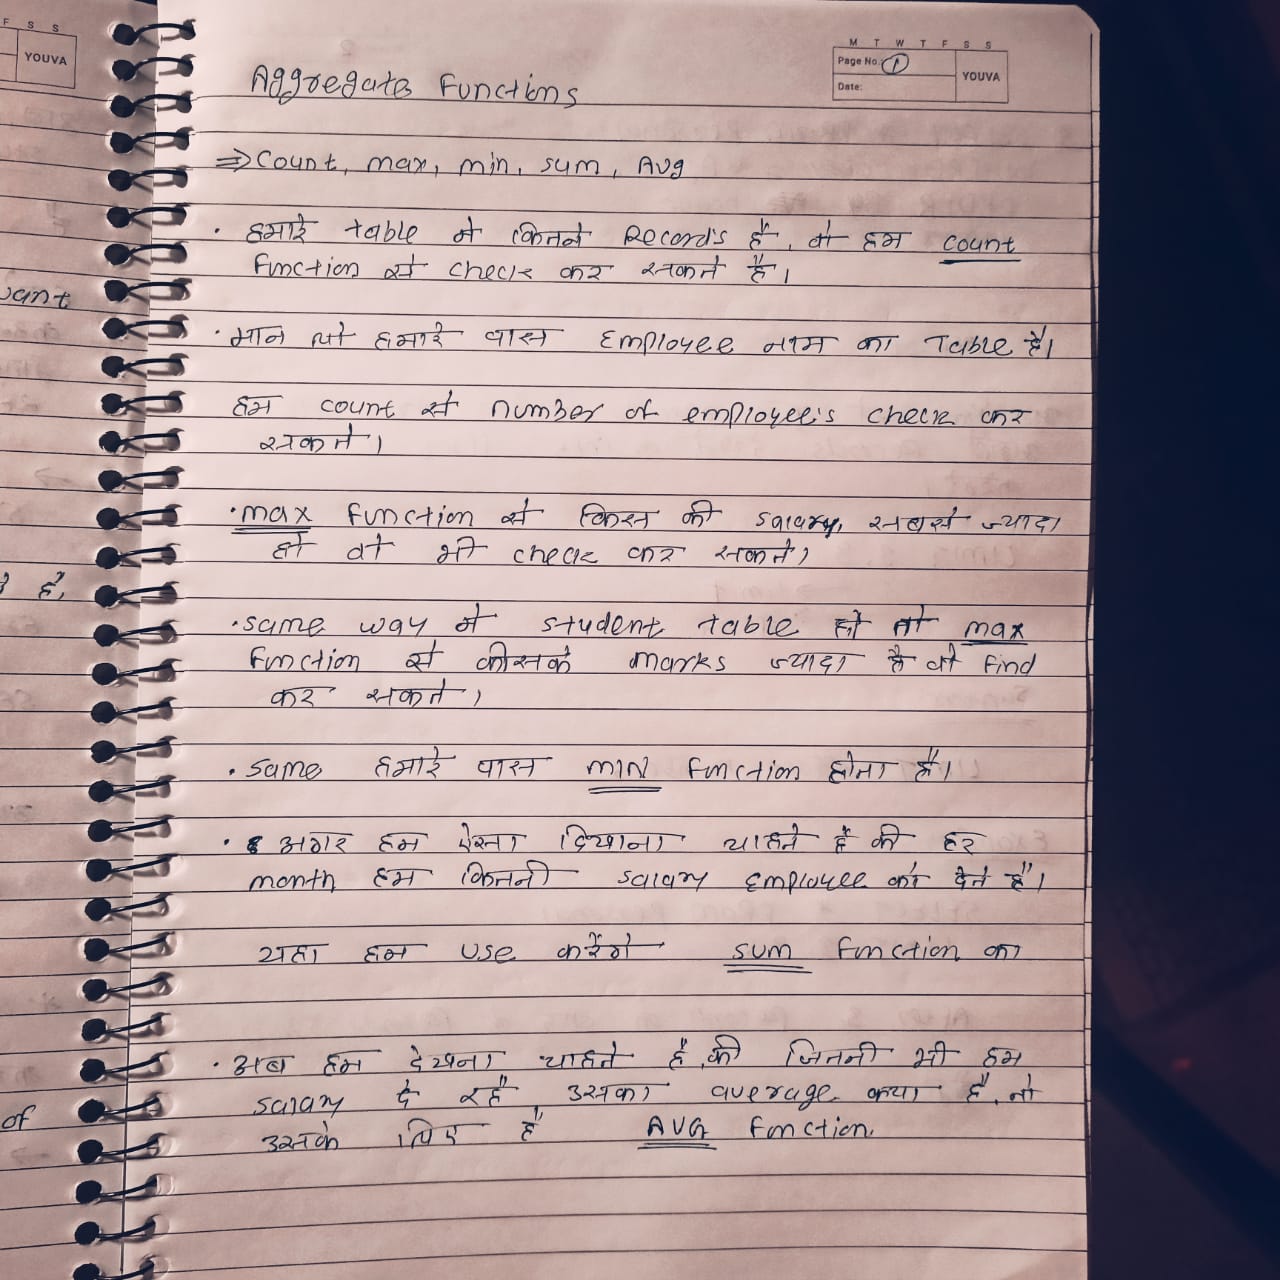 F S S
YOUVA
M T W T F S S
Page No. 1
YOUVA
Date:
Aggregate Functions
⇒ Count, max, min, sum, Avg
• हमारे table मे कितने Record's हैं, वो हम count
function से check कर सकते हैं।
• मान लो हमारे पास Employee नाम का Table है।
हम count से number of employee's check कर
सकते।
• max function से किस की salary, सबसे ज्यादा
हो वो भी check कर सकते।
• same way मे student table हो तो max
function से कीसके marks ज्यादा है वो find
कर सकते।
• same हमारे पास MIN function होता है।
• अगर हम ऐसा दिखाना चाहते हैं की हर
month हम कितनी salary employee को देते हैं।
यहा हम use करेंगे sum function का
• अब हम देखना चाहते हैं की जितनी भी हम
salary दे रहें उसका average क्या हैं, तो
उसके लिए हैं AVG function.
vant
हैं,
of